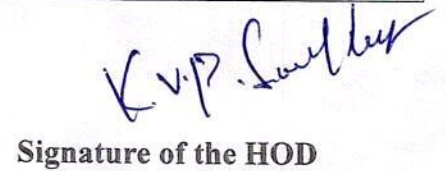 K.V.P.
Signature of the HOD